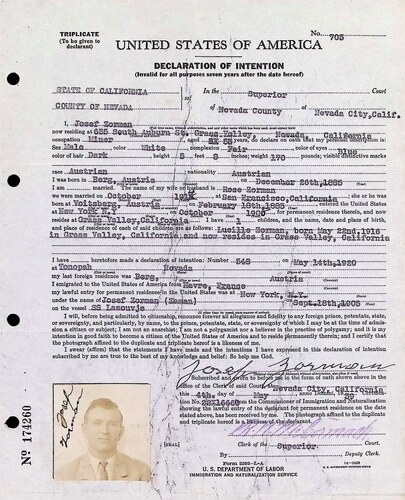 TRIPLICATE
(To be given to
declarant)
No. 705
UNITED STATES OF AMERICA
DECLARATION OF INTENTION
(Invalid for all purposes seven years after the date hereof)
STATE OF CALIFORNIA
COUNTY OF NEVADA
ss:
In the Superior Court
of Nevada County at Nevada City, Calif.
I, Josef Zorman
now residing at 635 South Auburn St. Grass Valley, Nevada, California
occupation Miner, aged 53, do declare on oath that my personal description is:
Sex Male, color White, complexion Fair, color of eyes Blue
color of hair Dark, height 5 feet 8 inches; weight 170 pounds; visible distinctive marks
race Austrian nationality Austrian
I was born in Berg, Austria on December 26th, 1885
I am married. The name of my wife or husband is Rose Zorman
we were married on October at San Francisco, California she or he was
born at Voitsberg, Austria on February 16th, 1885, entered the United States
at New York N.Y. on October 1906 for permanent residence therein, and now
resides at Grass Valley, California I have 1 children, and the name, date and place of birth,
and place of residence of each of said children are as follows: Lucille Zorman, born May 22nd, 1916
in Grass Valley, California and now resides in Grass Valley, California
I have heretofore made a declaration of intention: Number 548 on May 14th, 1920
at Tonopah Nevada
my last foreign residence was Berg, Austria
I emigrated to the United States of America from Havre, France
my lawful entry for permanent residence in the United States was at New York,
under the name of Josef Zorman on Sept. 18th, 1905
on the vessel SS
I will, before being admitted to citizenship, renounce forever all allegiance and fidelity to any foreign prince, potentate, state,
or sovereignty, and particularly, by name, to the prince, potentate, state, or sovereignty of which I may be at the time of admission
a citizen or subject; I am not an anarchist; I am not a polygamist nor a believer in the practice of polygamy; and it is my
intention in good faith to become a citizen of the United States of America and to reside permanently therein; and I certify that
the photograph affixed to the duplicate and triplicate hereof is a likeness of me.
I swear (affirm) that the statements I have made and the intentions I have expressed in this declaration of intention
subscribed by me are true to the best of my knowledge and belief: So help me God.
Josef Zorman
Subscribed and sworn to before me in the form of oath shown above in the
office of the Clerk of said Court, at Nevada City, California
this 4th, day of May, anno Domini, 19 39 Certification
No. from the Commissioner of Immigration and Naturalization
showing the lawful entry of the declarant for permanent residence on the date
stated above, has been received by me. The photograph affixed to the duplicate
and triplicate hereof is a likeness of the declarant.
Josef Zorman
No 174260
[SEAL]
Clerk of the Superior Court.
By , Deputy Clerk.
Form 2202-L-A
U. S. DEPARTMENT OF LABOR
IMMIGRATION AND NATURALIZATION SERVICE